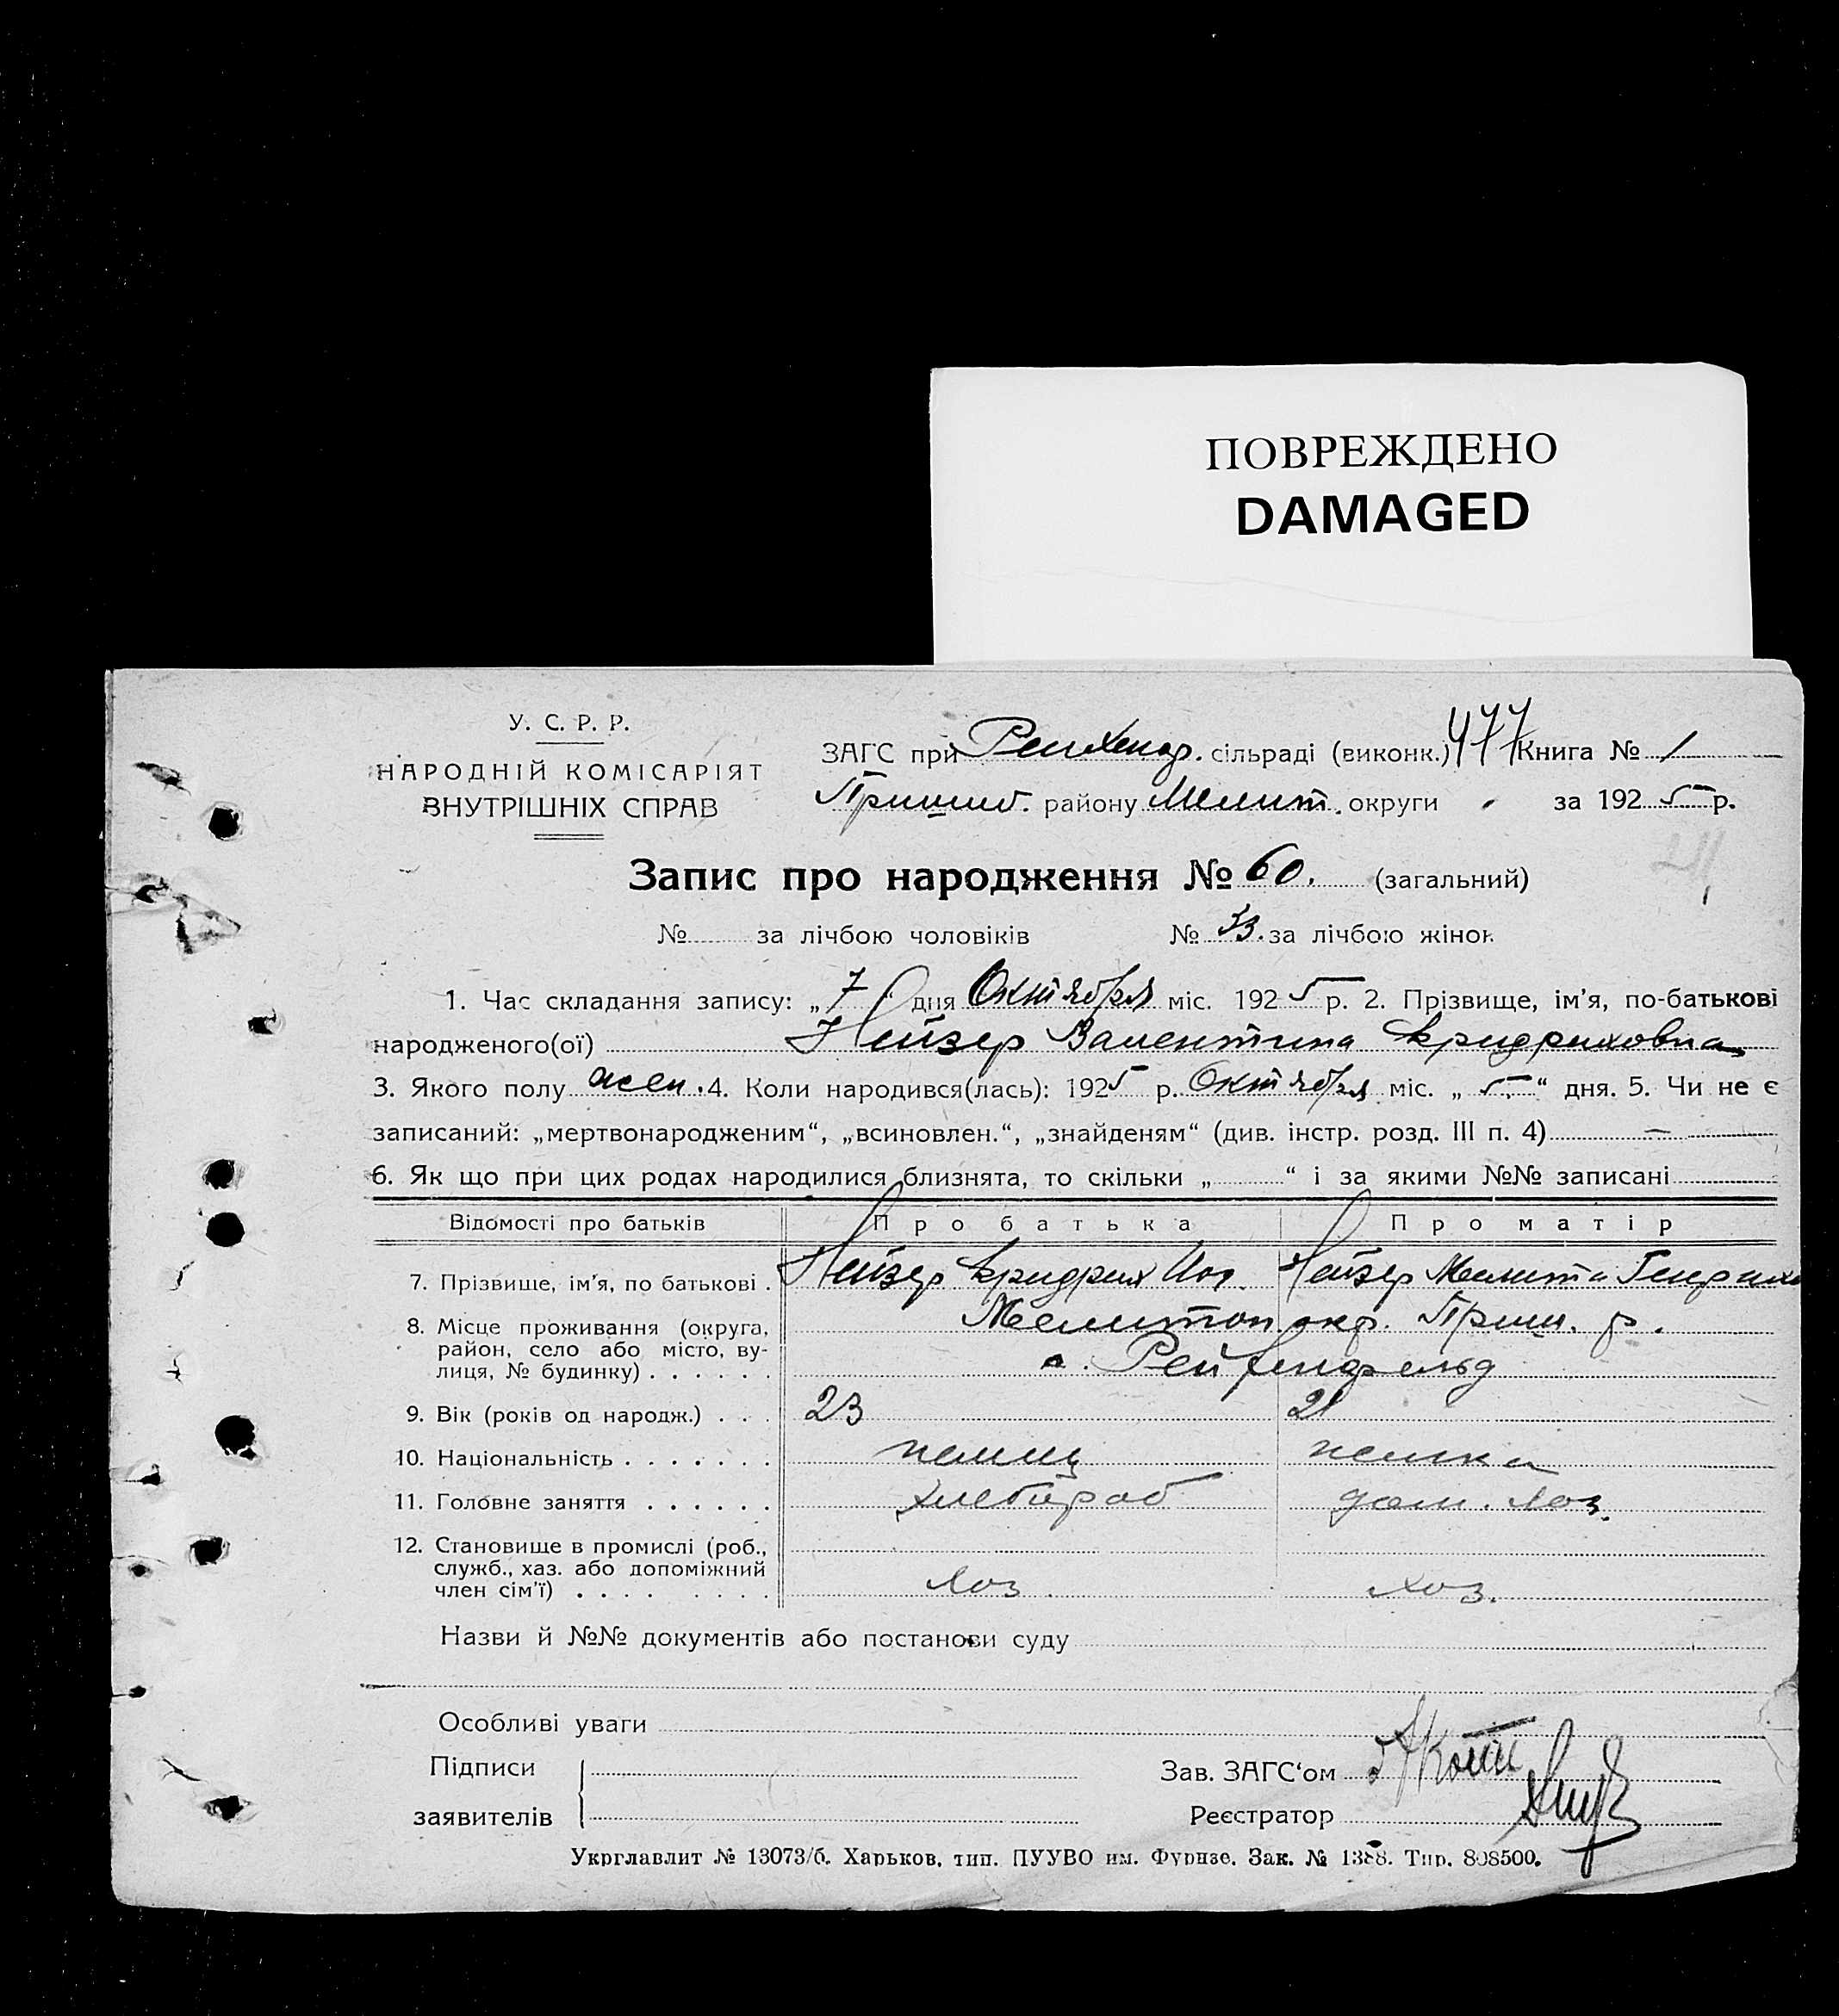 ПОВРЕЖДЕНО
DAMAGED
У. С. Р. Р.
НАРОДНІЙ КОМІСАРІЯТ
ВНУТРІШНІХ СПРАВ
ЗАГС при Рейхенф. сільраді (виконк.) 477 Книга № 1
Пришиб. району Мелит. округи за 1925 р.
Запис про народження № 60. (загальний)
№ за лічбою чоловіків № 33. за лічбою жінок
1. Час складання запису: „7“ дня Октября міс. 1925 р. 2. Прізвище, ім'я, по-батькові
народженого(ої) Нейзер Валентина Фридриховна
3. Якого полу жен. 4. Коли народився(лась): 1925 р. Октября міс. „5“ дня. 5. Чи не є
записаний: „мертвонародженим“, „всиновлен.“, „знайденям“ (див. інстр. розд. III п. 4) —
6. Як що при цих родах народилися близнята, то скільки „ “ і за якими №№ записані
Відомості про батьків Про батька Про матір
7. Прізвище, ім'я, по батькові . Нейзер Фридрих Нейзер Мелита Генрихо
8. Місце проживання (округа, район, село або місто, вулиця, № будинку) . . . . . . Мелитоп. окр. Приш. р.
Рейхенфельд
9. Вік (років од народж.) . . . 23 21
10. Національність . . . . . . . немец немка
11. Головне заняття . . . . . . хлебороб дом. хоз.
12. Становище в промислі (роб.,
служб., хаз. або допоміжний
член сім'ї) . . . . . . . . хоз. хоз.
Назви й №№ документів або постанови суду
Особливі уваги
Підписи
заявителів
Зав. ЗАГС‘ом
Реєстратор
Укрглавлит № 13073/б. Харьков, тип. ПУУВО им. Фрунзе. Зак. № 1388. Тир. 808500.